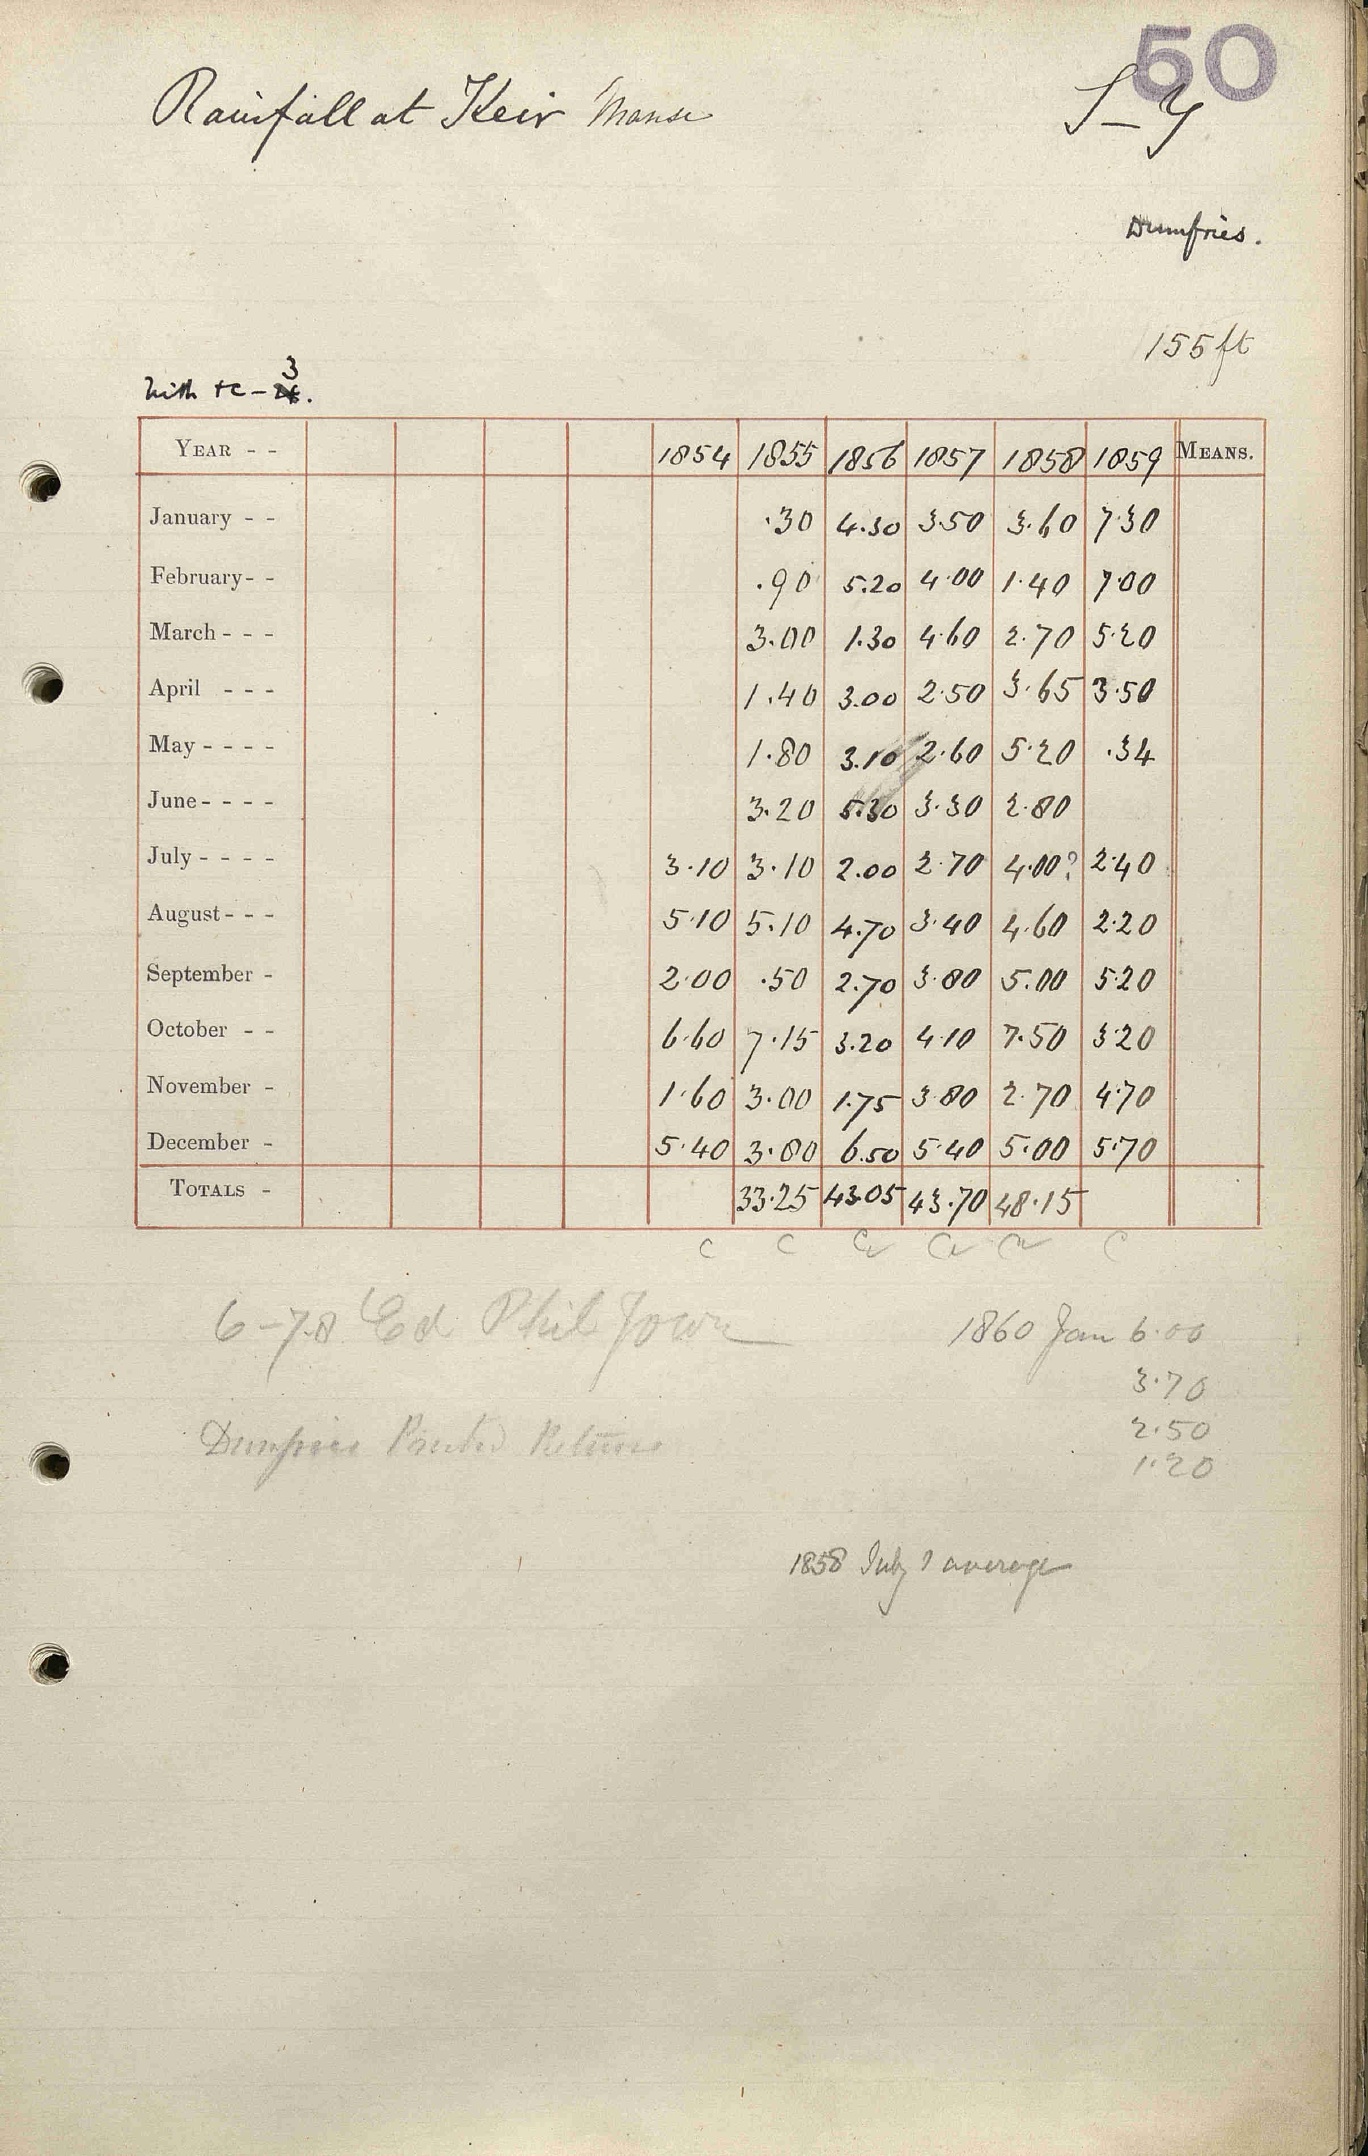 50
Rainfall at Keir Manse
S-Y
Dumfries.
155 ft
Nith +c - 3.
YEAR - - 1854 1855 1856 1857 1858 1859 MEANS.
January - - .30 4.30 3.50 3.60 7.30
February - - .90 5.20 4.00 1.40 7.00
March - - - 3.00 1.30 4.60 2.70 5.20
April - - - 1.40 3.00 2.50 3.65 3.50
May - - - - 1.80 3.10 2.60 5.20 .34
June - - - - 3.20 5.30 3.30 2.80
July - - - - 3.10 3.10 2.00 2.70 4.00? 2.40
August - - - 5.10 5.10 4.70 3.40 4.60 2.20
September - 2.00 .50 2.70 3.80 5.00 5.20
October - - 6.60 7.15 3.20 4.10 7.50 3.20
November - 1.60 3.00 1.75 3.80 2.70 4.70
December - 5.40 3.80 6.50 5.40 5.00 5.70
TOTALS - 33.25 43.05 43.70 48.15
C C Cr Cr Cr C
6-7.8 Ed Phil Journ
1860 Jan 6.00
3.70
2.50
1.20
Dumfries Printed Returns
1858 July ? average